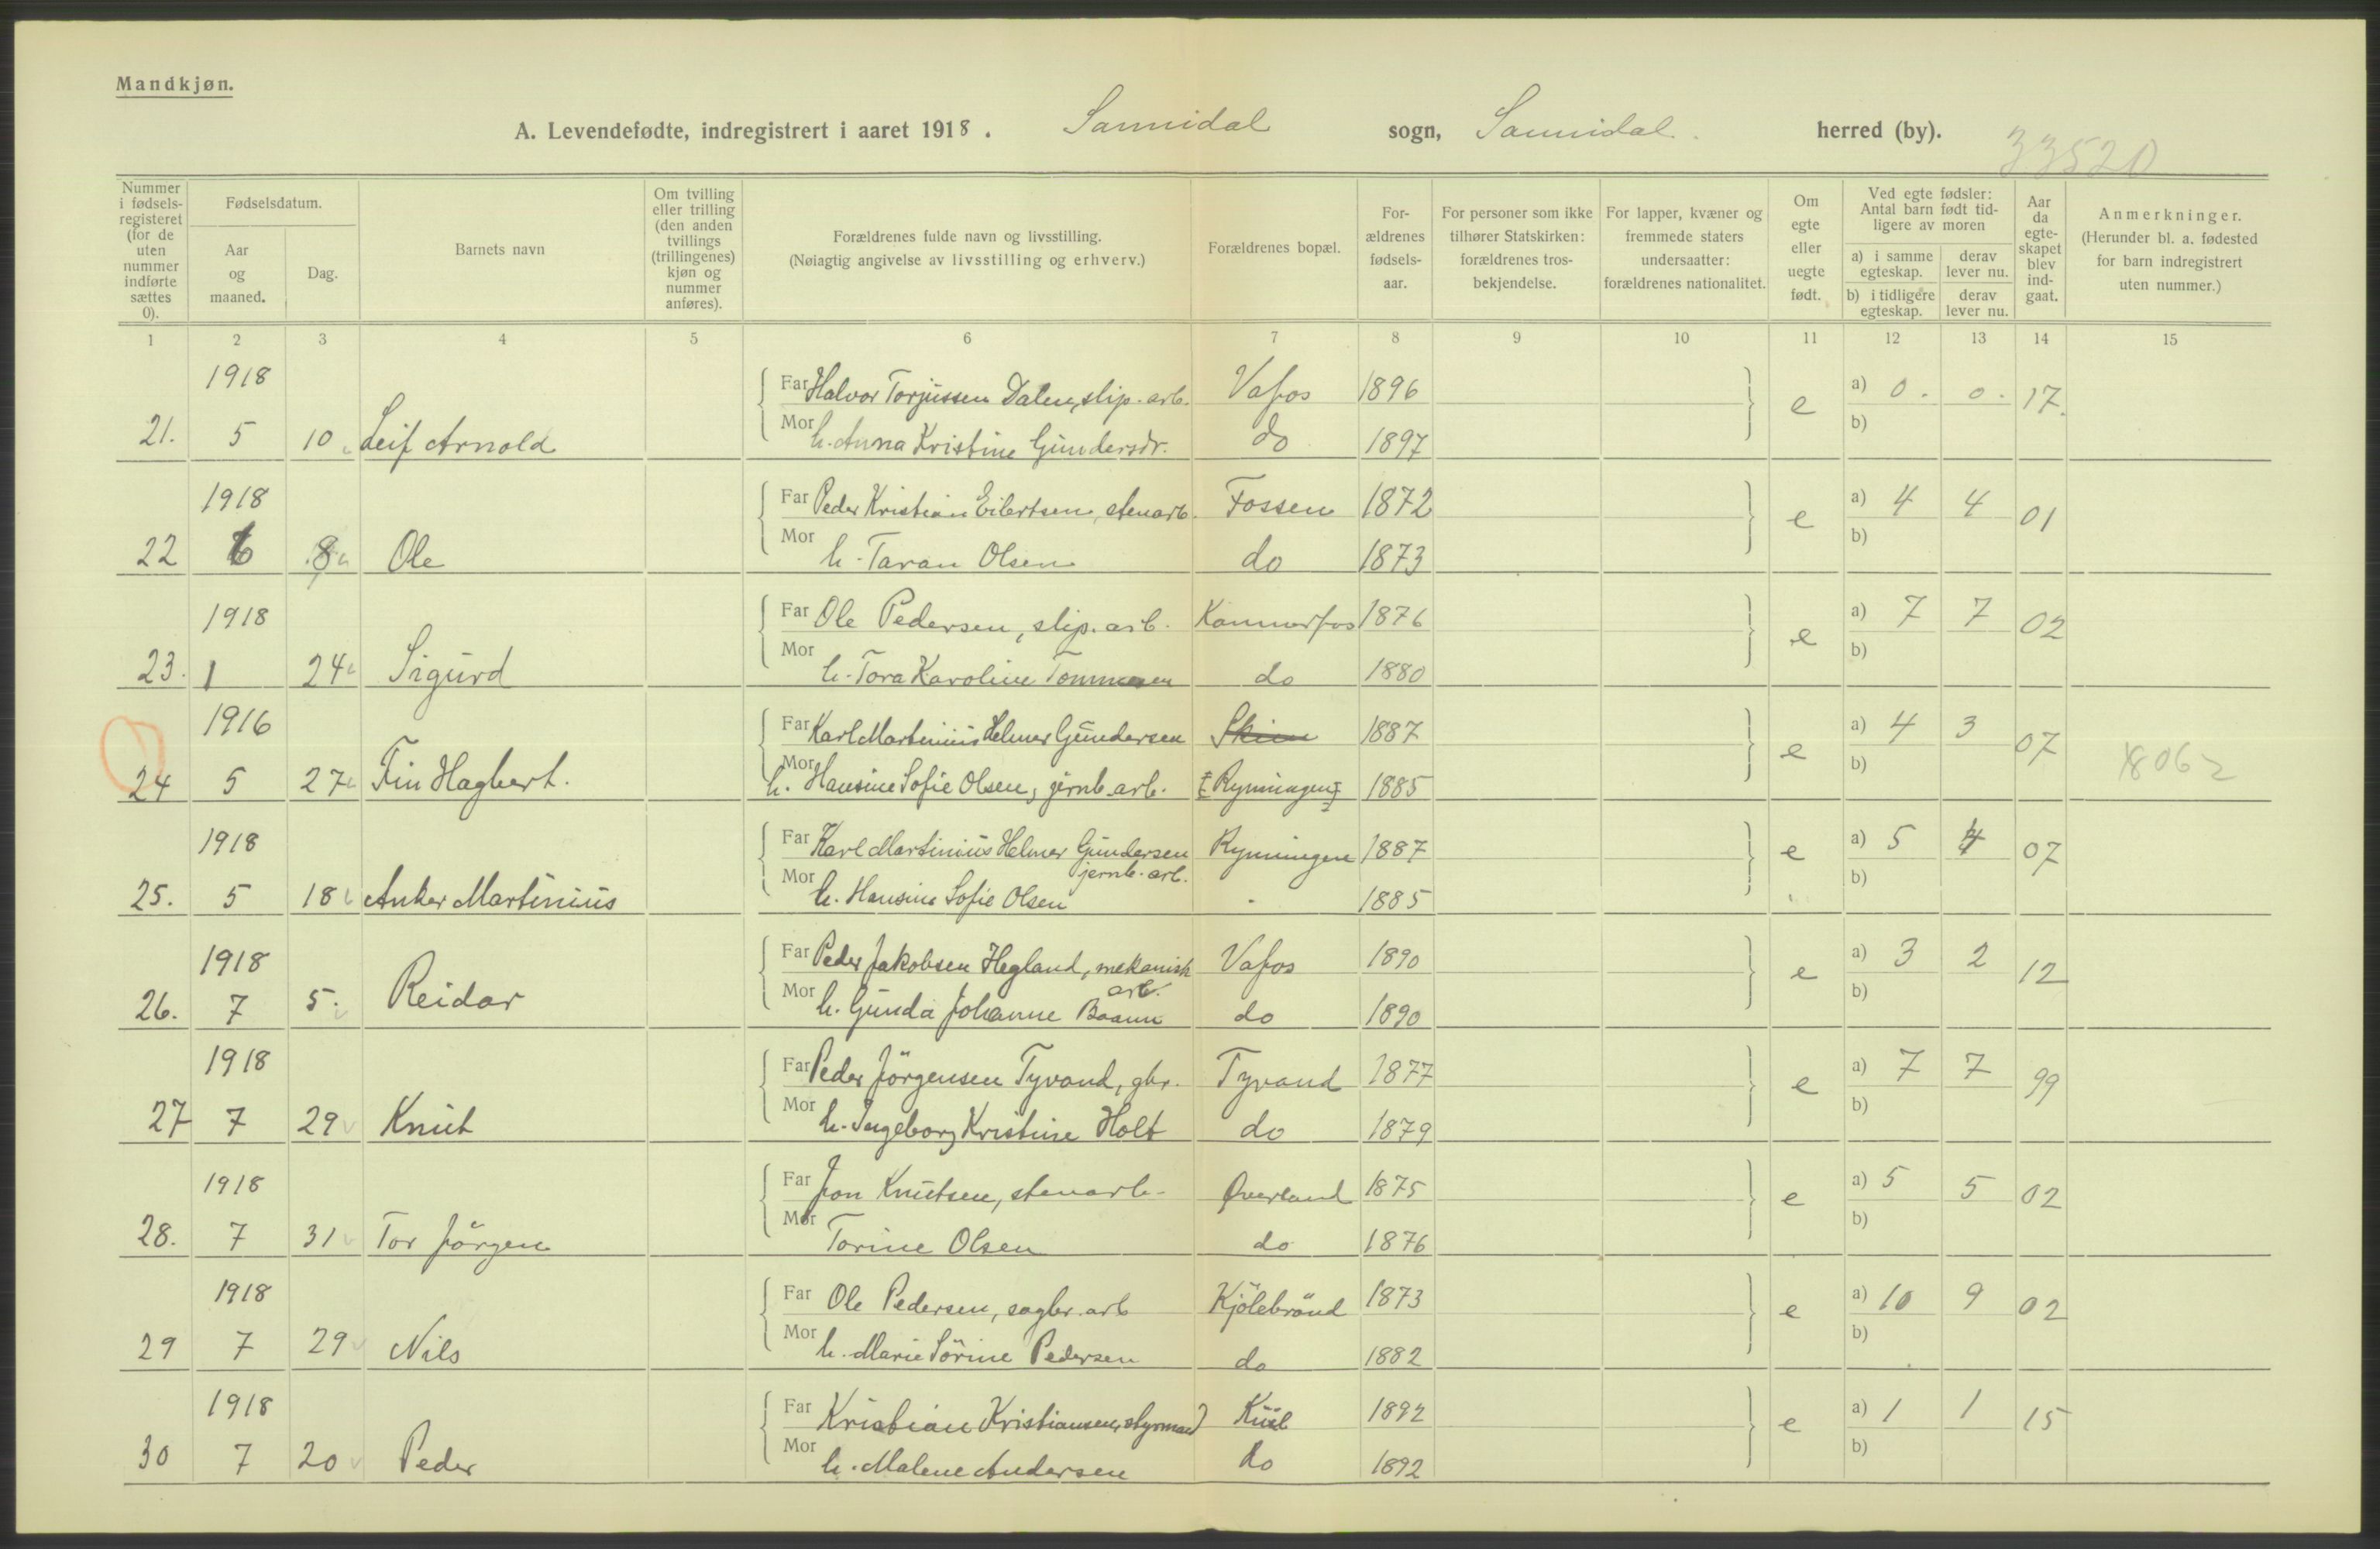 Mandkjøn.
A. Levendefødte, indregistrert i aaret 1918. Sannidal sogn, Sannidal. herred (by).
33520
Nummer i fødsels-registeret (for de uten nummer indførte sættes 0).
Fødselsdatum.
Aar og maaned.
Dag.
Barnets navn
Om tvilling eller trilling (den anden tvillings (trillingenes) kjøn og nummer anføres).
Forældrenes fulde navn og livsstilling. (Nøiagtig angivelse av livsstilling og erhverv.)
Forældrenes bopæl.
For-ældrenes fødsels-aar.
For personer som ikke tilhører Statskirken: forældrenes tros-bekjendelse.
For lapper, kvæner og fremmede staters undersaatter: forældrenes nationalitet.
Om egte eller uegte født.
Ved egte fødsler: Antal barn født tid-ligere av moren
a) i samme egteskap. derav lever nu.
b) i tidligere egteskap. derav lever nu.
Aar da egte-skapet blev ind-gaat.
Anmerkninger. (Herunder bl. a. fødested for barn indregistrert uten nummer.)
1 2 3 4 5 6 7 8 9 10 11 12 13 14 15
1918 Far Halvor Torjussen Dalen, slip. arb. Vafos 1896 e a) 0. 0. 17.
21. 5 10 Leif Arnold Mor h. Anna Kristine Gundersdr. do 1897 b)
1918 Far Peder Kristian Eilertsen, stenarb. Fossen 1872 e a) 4 4 01
22 6 8 Ole Mor h. Taran Olsen do 1873 b)
1918 Far Ole Pedersen, slip. arb. Kammerfos 1876 e a) 7 7 02
23. 1 24 Sigurd Mor h. Tora Karoline Tommesen do 1880 b)
1916 Far Karl Martinius Helmer Gundersen Skien 1887 e a) 4 3 07
24 5 27 Fin Hagbert. Mor h. Hansine Sofie Olsen, jernb. arb. [Rymningen] 1885 b) 18062
1918 Far Karl Martinius Helmer Gundersen Rymningen 1887 e a) 5 4 07
jernb. arb.
25. 5 18 Anker Martinius Mor h. Hansine Sofie Olsen - 1885 b)
1918 Far Peder Jakobsen Hegland, mekanisk Vafos 1890 e a) 3 2 12
arb.
26. 7 5. Reidar Mor h. Gunda Johanne Baann do 1890 b)
1918 Far Peder Jörgensen Tyvand, gbr. Tyvand 1877 e a) 7 7 99
27 7 29 Knut Mor h. Ingeborg Kristine Holt do 1879 b)
1918 Far Jon Knutsen, stenarb. Øverland 1875 e a) 5 5 02
28. 7 31 Tor Jörgen Mor Torine Olsen do 1876 b)
1918 Far Ole Pedersen, sagbr. arb Kjölebrönd 1873 e a) 10 9 02
29 7 29 Nils Mor h. Marie Sörine Pedersen do 1882 b)
1918 Far Kristian Kristiansen, styrmand Kiil 1892 e a) 1 1 15
30 7 20 Peder Mor h. Malene Andersen do 1892 b)